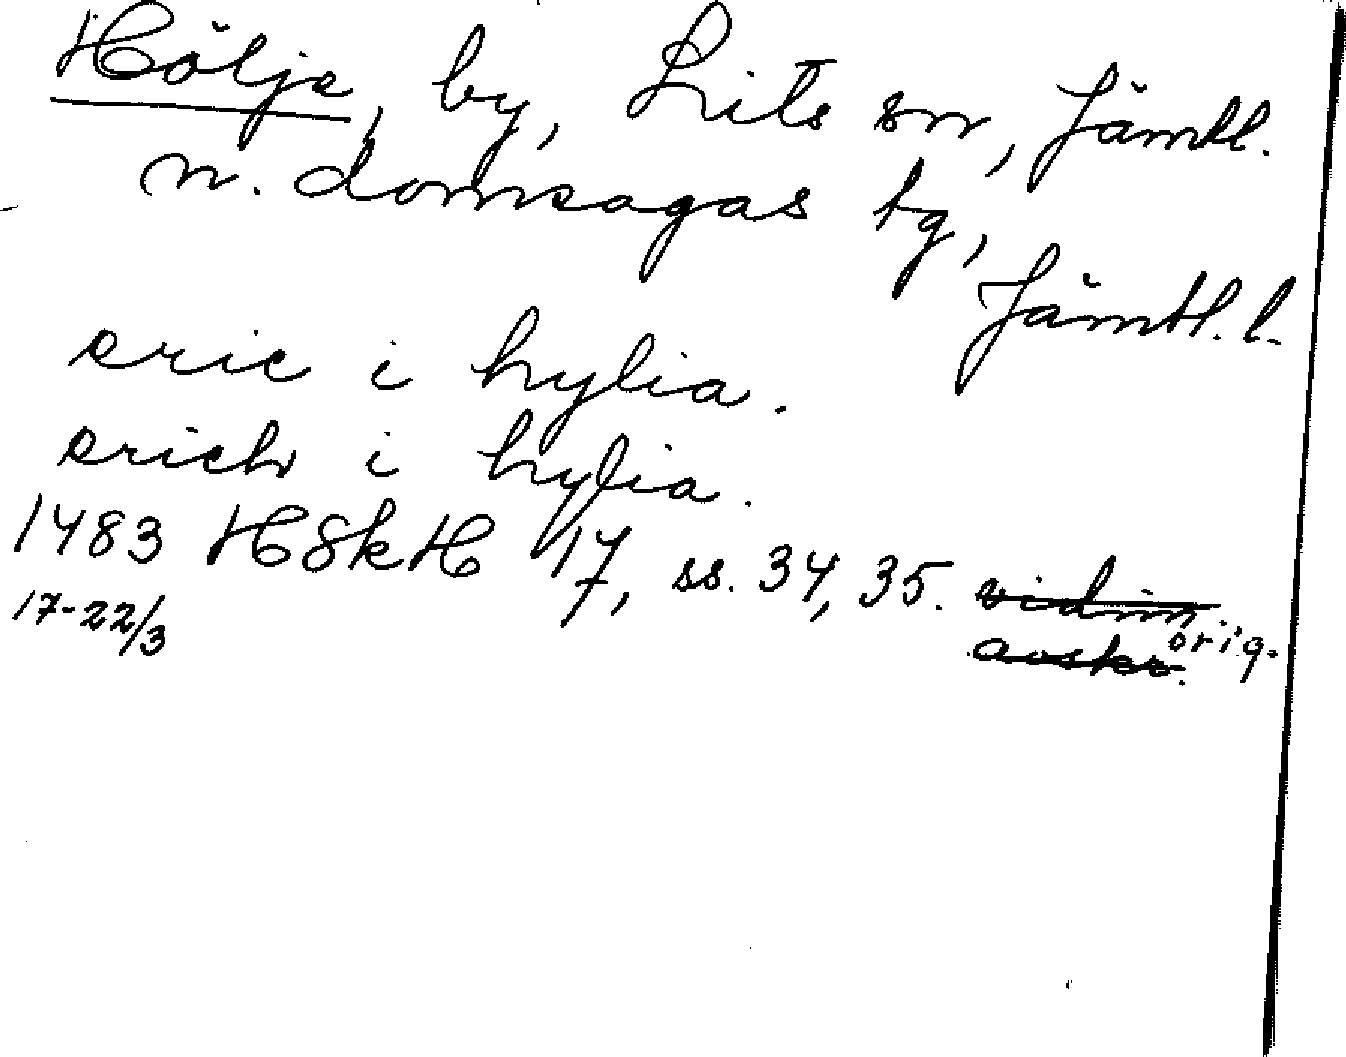 Hölje, by, Lits sn, Jämtl.
n. domsagas tg,
Jämtl. l.
eric i hylia.
erich i hylia.
1483 HSkH 17, ss. 34, 35. vidim
17-22/3 avskr. orig.